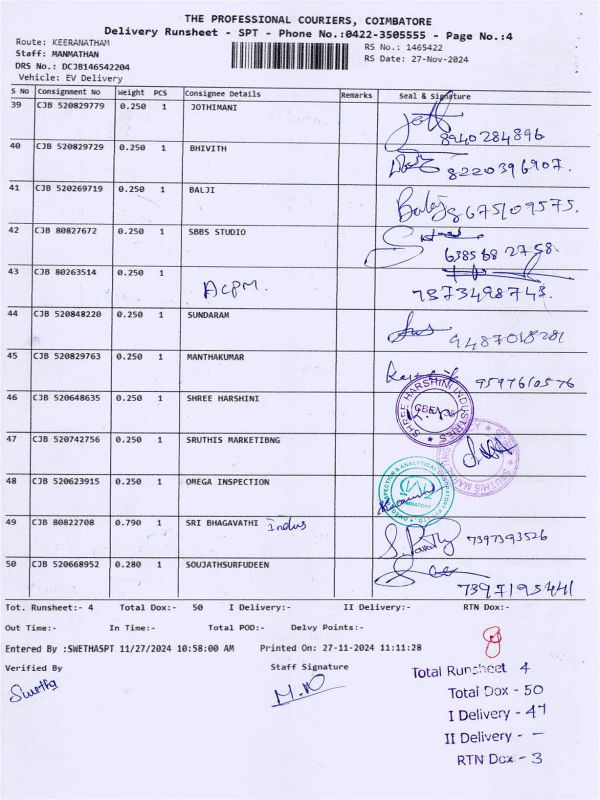 THE PROFESSIONAL COURIERS, COIMBATORE
Delivery Runsheet - SPT - Phone No.:0422-3505555 - Page No.:4
Route: KEERANATHAM
Staff: MANMATHAN
DRS No.: DCJB146542204
Vehicle: EV Delivery
RS No.: 1465422
RS Date: 27-Nov-2024
S No Consignment No Weight PCS Consignee Details Remarks Seal & Signature
39 CJB 520829779 0.250 1 JOTHIMANI 8940284896
40 CJB 520829729 0.250 1 BHIVITH 8220396907.
41 CJB 520269719 0.250 1 BALJI Balaj 8675109575.
42 CJB 80827672 0.250 1 SBBS STUDIO 6385682758.
43 CJB 80263514 0.250 1 ACPM. 7373498743.
44 CJB 520848220 0.250 1 SUNDARAM 9487018281
45 CJB 520829763 0.250 1 MANTHAKUMAR 9597610576
46 CJB 520648635 0.250 1 SHREE HARSHINI SHREE HARSHINI INDUSTRIES
47 CJB 520742756 0.250 1 SRUTHIS MARKETIBNG
48 CJB 520623915 0.250 1 OMEGA INSPECTION
49 CJB 80822708 0.790 1 SRI BHAGAVATHI Indus 7397393526
50 CJB 520668952 0.280 1 SOUJATHSURFUDEEN 7397195441
Tot. Runsheet:- 4 Total Dox:- 50 I Delivery:- II Delivery:- RTN Dox:-
Out Time:- In Time:- Total POD:- Delvy Points:-
Entered By :SWETHASPT 11/27/2024 10:58:00 AM Printed On: 27-11-2024 11:11:28
Verified By Staff Signature
Swetha
Total Runsheet 4
Total Dox - 50
I Delivery - 47
II Delivery - -
RTN Dox - 3